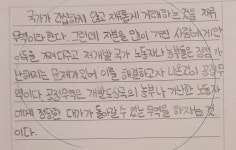 국가가 간섭하지 않고 자유롭게 거래하는 것을 자유
무역이라 한다. 그런데 자본을 많이 가진 사람에게만
이득을 쥐여주고 저개발 국가 노동자나 농부들은 점점 가
난해지는 문제가 있어 이를 해결하고자 나온것이 공정무
역이다. 공정무역은 개발도상국의 농부나 가난한 노동자
에게 정당한 대가가 돌아갈 수 있는 무역을 하자는 것
이다.